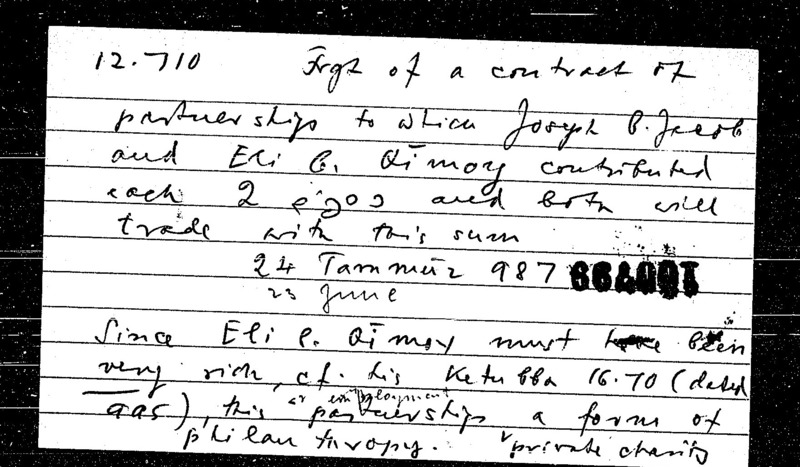 12.710 Frgt of a contract of
partnerships to which Joseph b. Jacob
and Eli b. Qīmoy contributed
each 2 and both will
trade with this sum
24 Tammūz 987
23 June
Since Eli b. Qīmoy must been
very rich, cf. his Ketubba 16.70 (dated
995), this or employment partnerships a form of
philanthropy. private charity